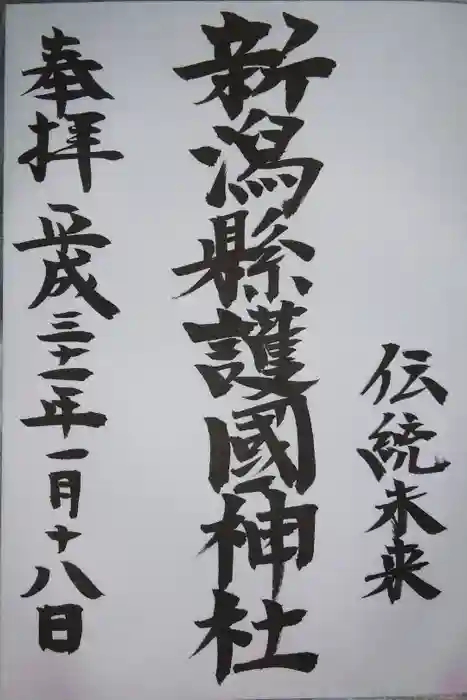 伝統未来
新潟縣護國神社
奉拝 平成三十一年一月十八日